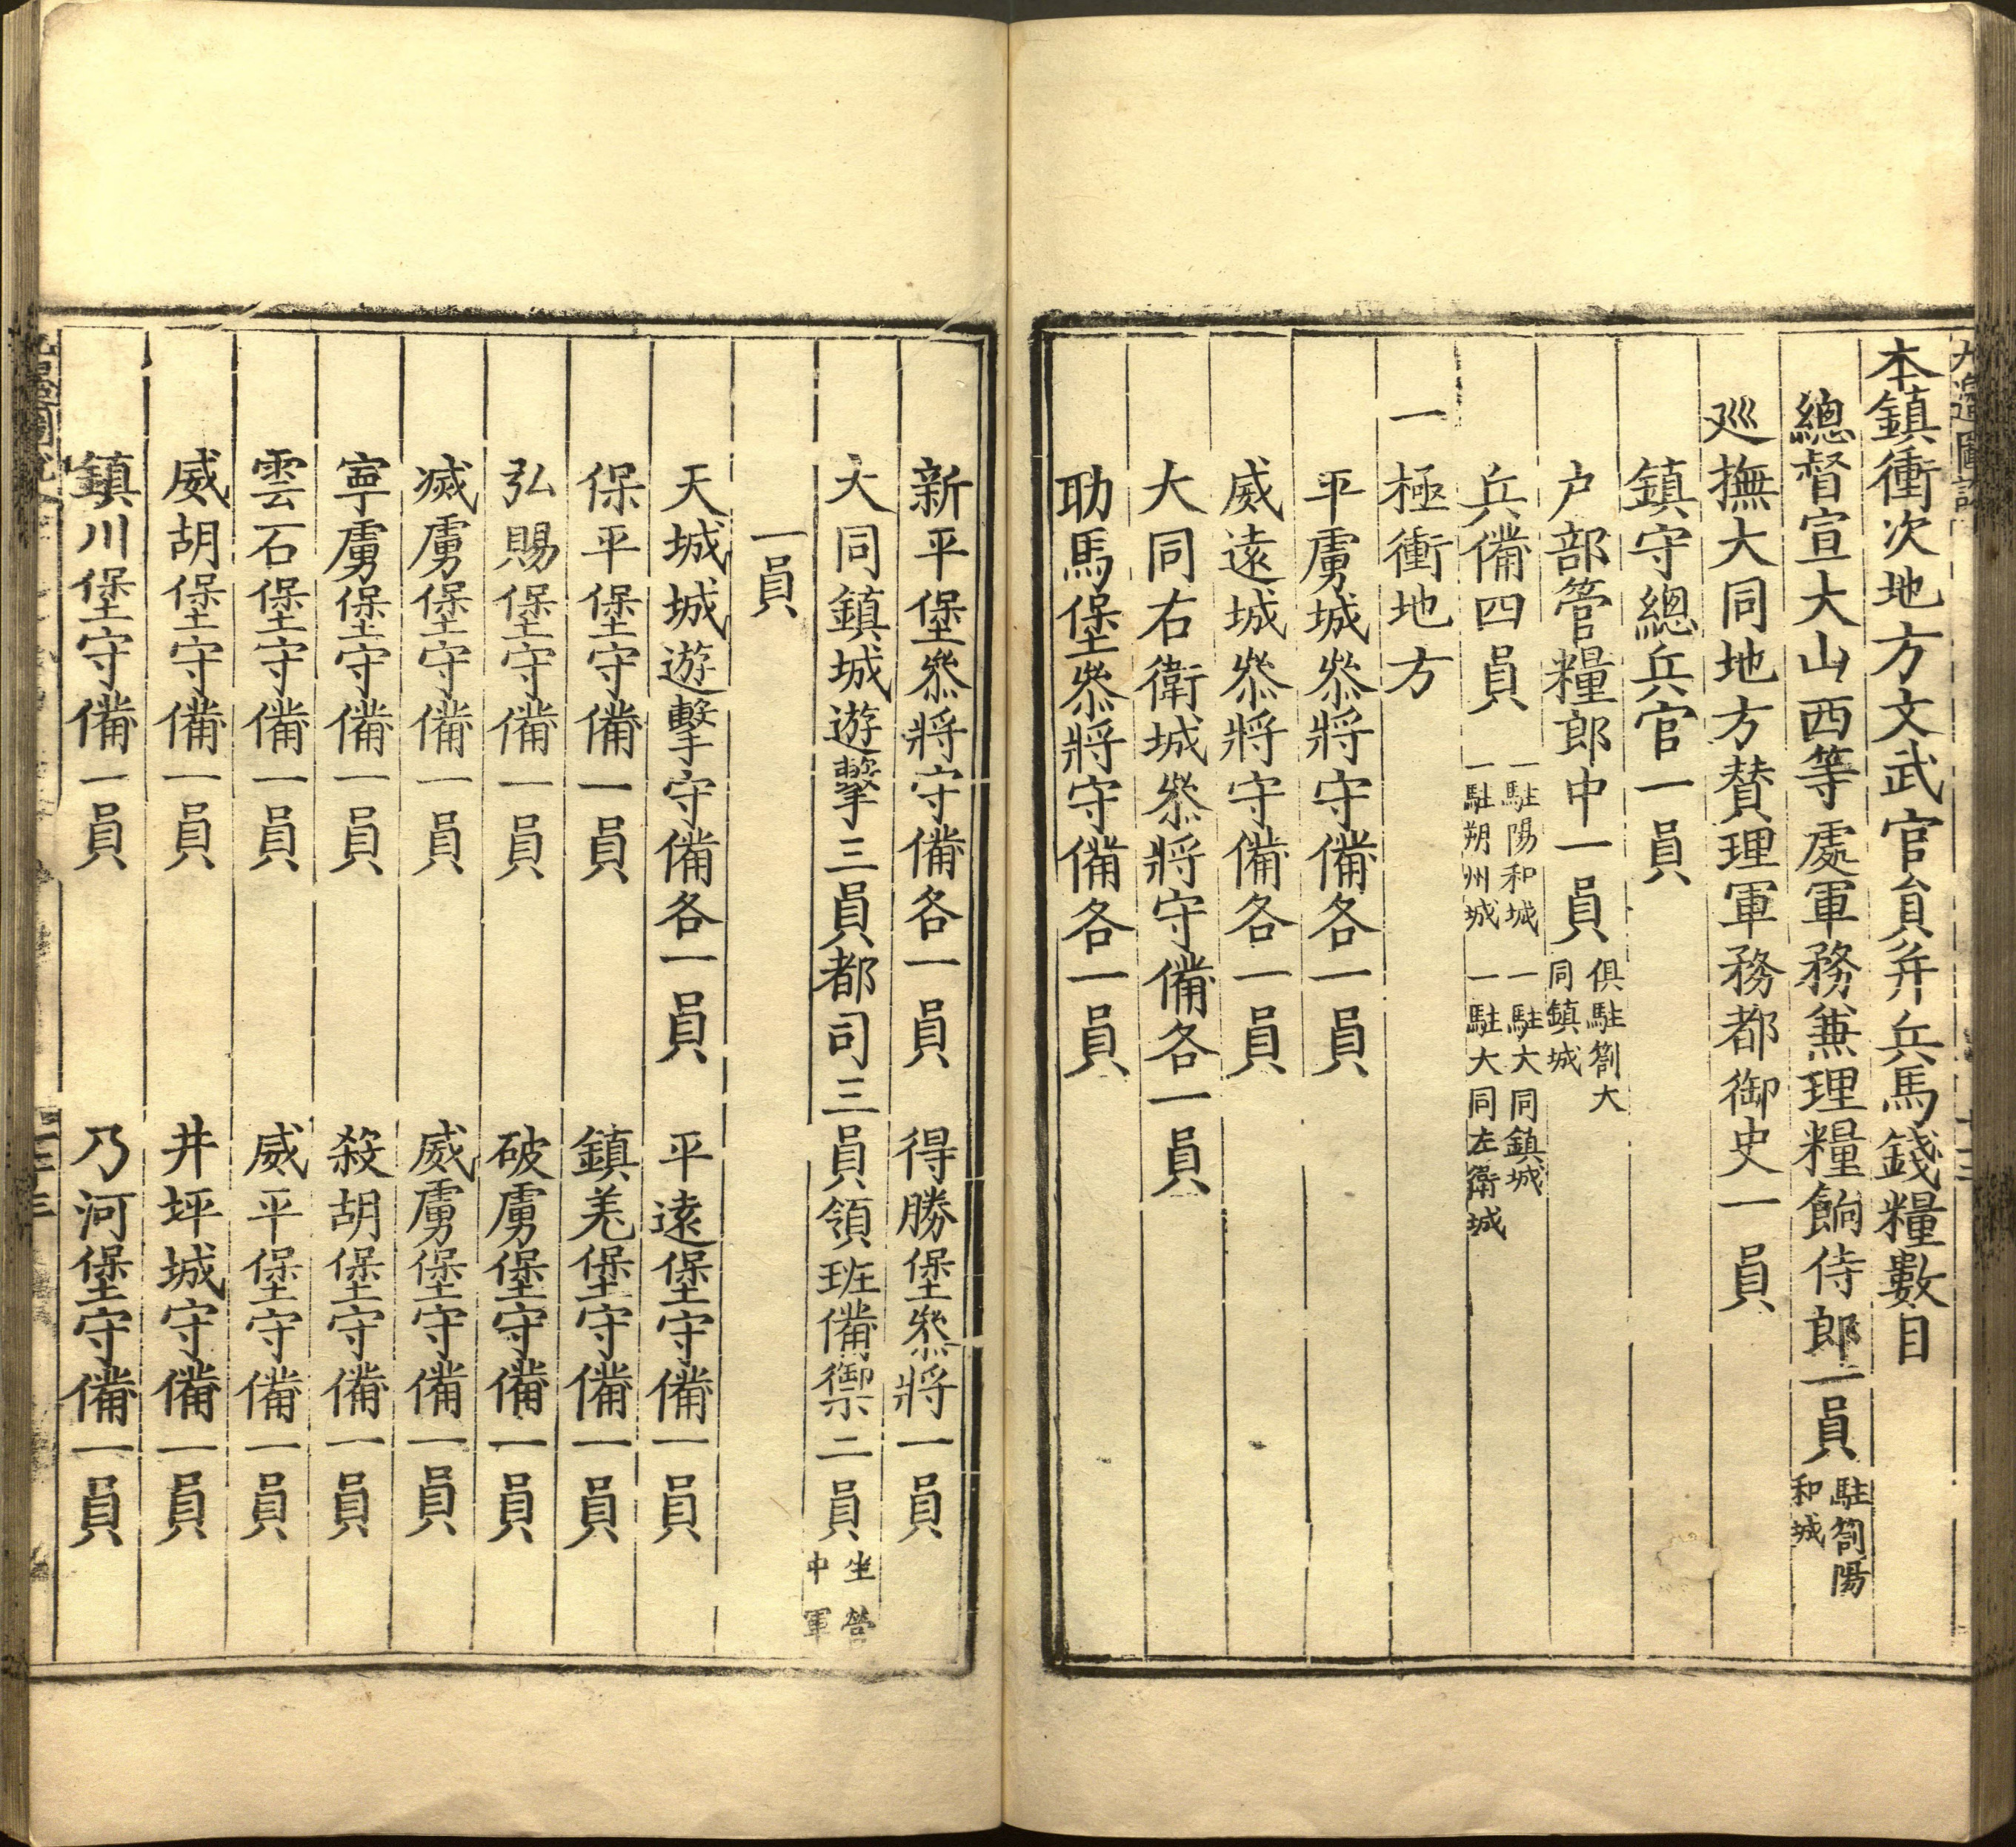 九邊圖說
本鎮衝次地方文武官員并兵馬錢糧數目
總督宣大山西等處軍務兼理糧餉侍郎一員駐劄陽和城
廵撫大同地方賛理軍務都御史一員
鎮守總兵官一員
户部管糧郎中一員俱駐劄大同鎮城
兵備四員一駐陽和城一駐朔州城一駐大同鎮城一駐大同左衛城
一極衝地方
平虜城叅將守備各一員
威遠城叅將守備各一員
大同右衛城叅將守備各一員
助馬堡叅將守備各一員
新平堡叅將守備各一員 得勝堡叅將一員
大同鎮城遊擊三員都司三員領班備禦二員坐營中軍
一員
天城城遊擊守備各一員 平遠堡守備一員
保平堡守備一員 鎮羌堡守備一員
弘賜堡守備一員 破虜堡守備一員
滅虜堡守備一員 威虜堡守備一員
寧虜堡守備一員 殺胡堡守備一員
雲石堡守備一員 威平堡守備一員
威胡堡守備一員 井坪城守備一員
鎮川堡守備一員 乃河堡守備一員